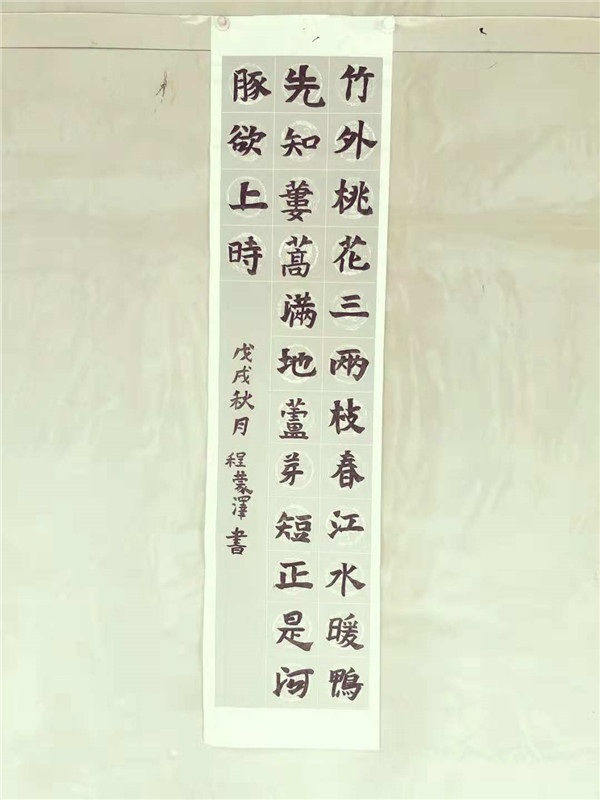 竹外桃花三兩枝春江水暖鴨
先知蔞蒿滿地蘆芽短正是河
豚欲上時
戊戌秋月程蒙澤書